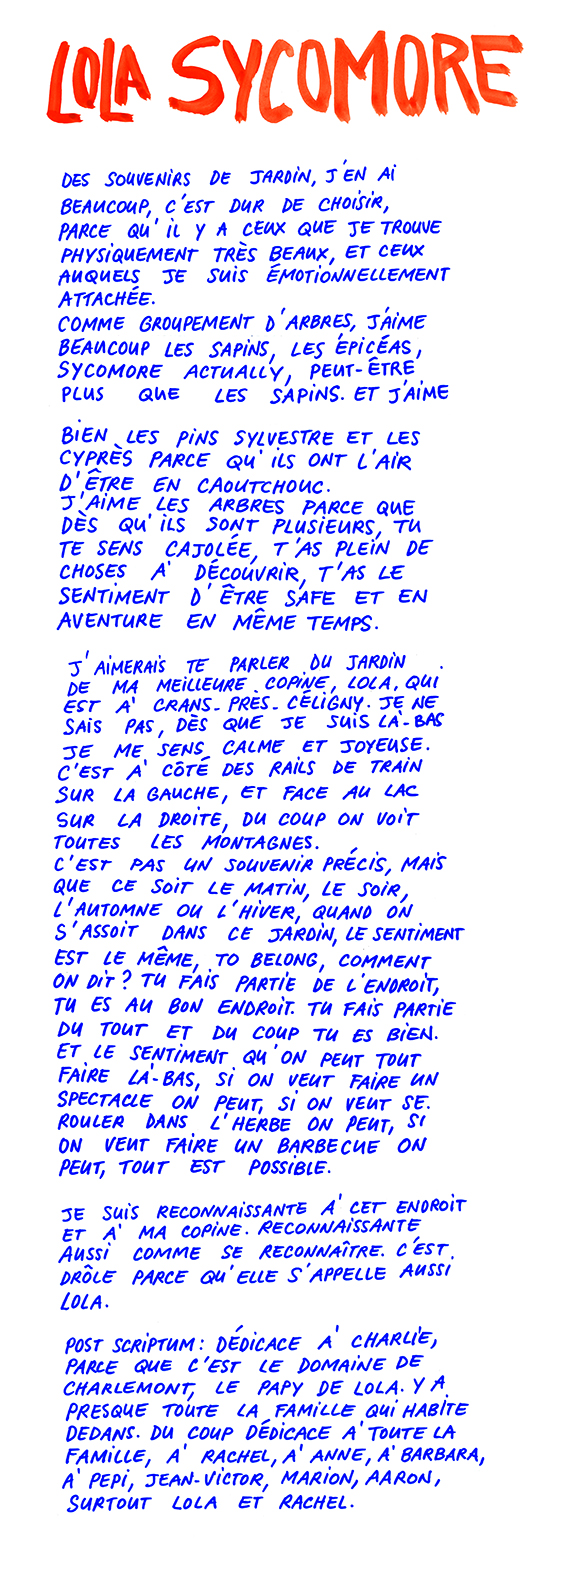 LOLA SYCOMORE
DES SOUVENIRS DE JARDIN, J'EN AI
BEAUCOUP, C'EST DUR DE CHOISIR,
PARCE QU'IL Y A CEUX QUE JE TROUVE
PHYSIQUEMENT TRÈS BEAUX, ET CEUX
AUQUELS JE SUIS ÉMOTIONNELLEMENT
ATTACHÉE.
COMME GROUPEMENT D'ARBRES, J'AIME
BEAUCOUP LES SAPINS, LES ÉPICÉAS,
SYCOMORE ACTUALLY, PEUT-ÊTRE
PLUS QUE LES SAPINS. ET J'AIME
BIEN LES PINS SYLVESTRE ET LES
CYPRÈS PARCE QU'ILS ONT L'AIR
D'ÊTRE EN CAOUTCHOUC.
J'AIME LES ARBRES PARCE QUE
DÈS QU'ILS SONT PLUSIEURS, TU
TE SENS CAJOLÉE, T'AS PLEIN DE
CHOSES À DÉCOUVRIR, T'AS LE
SENTIMENT D'ÊTRE SAFE ET EN
AVENTURE EN MÊME TEMPS.
J'AIMERAIS TE PARLER DU JARDIN
DE MA MEILLEURE COPINE, LOLA, QUI
EST À CRANS-PRÈS-CÉLIGNY. JE NE
SAIS PAS, DÈS QUE JE SUIS LÀ-BAS
JE ME SENS CALME ET JOYEUSE.
C'EST À CÔTÉ DES RAILS DE TRAIN
SUR LA GAUCHE, ET FACE AU LAC
SUR LA DROITE, DU COUP ON VOIT
TOUTES LES MONTAGNES.
C'EST PAS UN SOUVENIR PRÉCIS, MAIS
QUE CE SOIT LE MATIN, LE SOIR,
L'AUTOMNE OU L'HIVER, QUAND ON
S'ASSOIT DANS CE JARDIN, LE SENTIMENT
EST LE MÊME, TO BELONG, COMMENT
ON DIT? TU FAIS PARTIE DE L'ENDROIT,
TU ES AU BON ENDROIT. TU FAIS PARTIE
DU TOUT ET DU COUP TU ES BIEN.
ET LE SENTIMENT QU'ON PEUT TOUT
FAIRE LÀ-BAS, SI ON VEUT FAIRE UN
SPECTACLE ON PEUT, SI ON VEUT SE
ROULER DANS L'HERBE ON PEUT, SI
ON VEUT FAIRE UN BARBECUE ON
PEUT, TOUT EST POSSIBLE.
JE SUIS RECONNAISSANTE À CET ENDROIT
ET À MA COPINE. RECONNAISSANTE
AUSSI COMME SE RECONNAÎTRE. C'EST
DRÔLE PARCE QU'ELLE S'APPELLE AUSSI
LOLA.
POST SCRIPTUM: DÉDICACE À CHARLIE,
PARCE QUE C'EST LE DOMAINE DE
CHARLEMONT, LE PAPY DE LOLA. Y A
PRESQUE TOUTE LA FAMILLE QUI HABITE
DEDANS. DU COUP DÉDICACE À TOUTE LA
FAMILLE, À RACHEL, À ANNE, À BARBARA,
À PEPI, JEAN-VICTOR, MARION, AARON,
SURTOUT LOLA ET RACHEL.